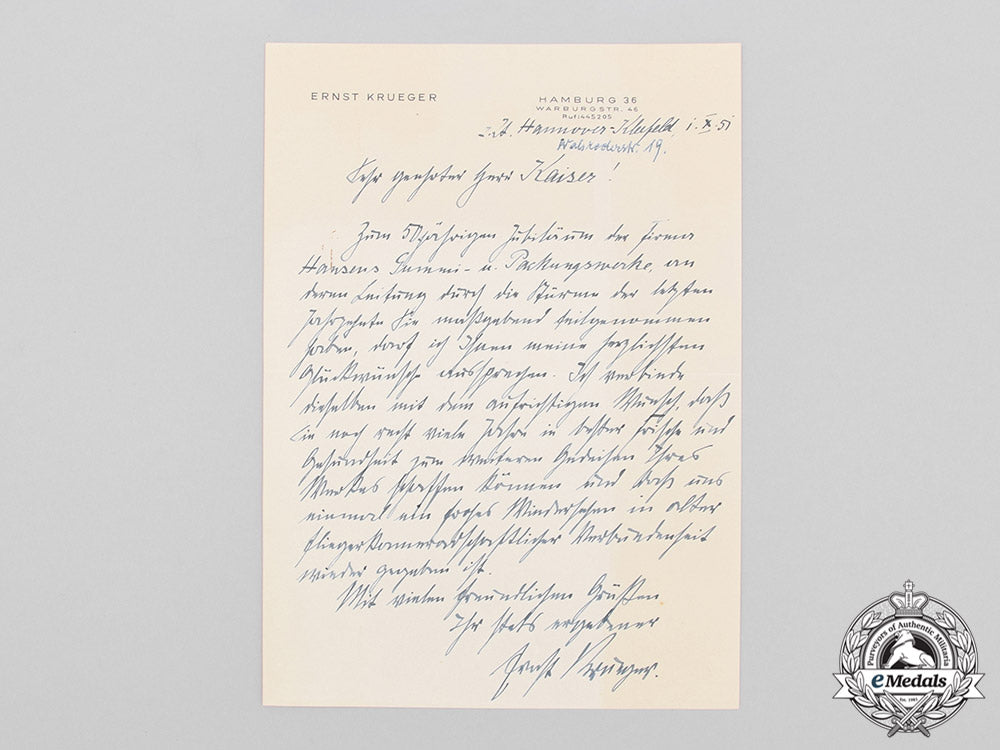 ERNST KRUEGER
HAMBURG 36
WARBURGSTR. 46
Ruf: 445205
z.Zt. Hannover-Kleefeld, 1. X. 51
Walsroderstr. 19.
Sehr geehrter Herr Kaiser!
Zum 50jährigen Jubiläum der Firma
Hansens Gummi- u. Packungswerke, an
deren Leitung durch die Stürme der letzten
Jahrzehnte Sie maßgebend teilgenommen
haben, darf ich Ihnen meine herzlichsten
Glückwünsche aussprechen. Ich verbinde
dieselben mit dem aufrichtigen Wunsch, daß
Sie noch recht viele Jahre in bester Frische und
Gesundheit zum weiteren Gedeihen Ihres
Werkes schaffen können und daß uns
einmal ein frohes Wiedersehen in alter
fliegerkameradschaftlicher Verbundenheit
wieder gegeben ist.
Mit vielen freundlichen Grüßen
Ihr stets ergebener
Ernst Krueger.
Purveyors of Authentic Militaria
eMedals